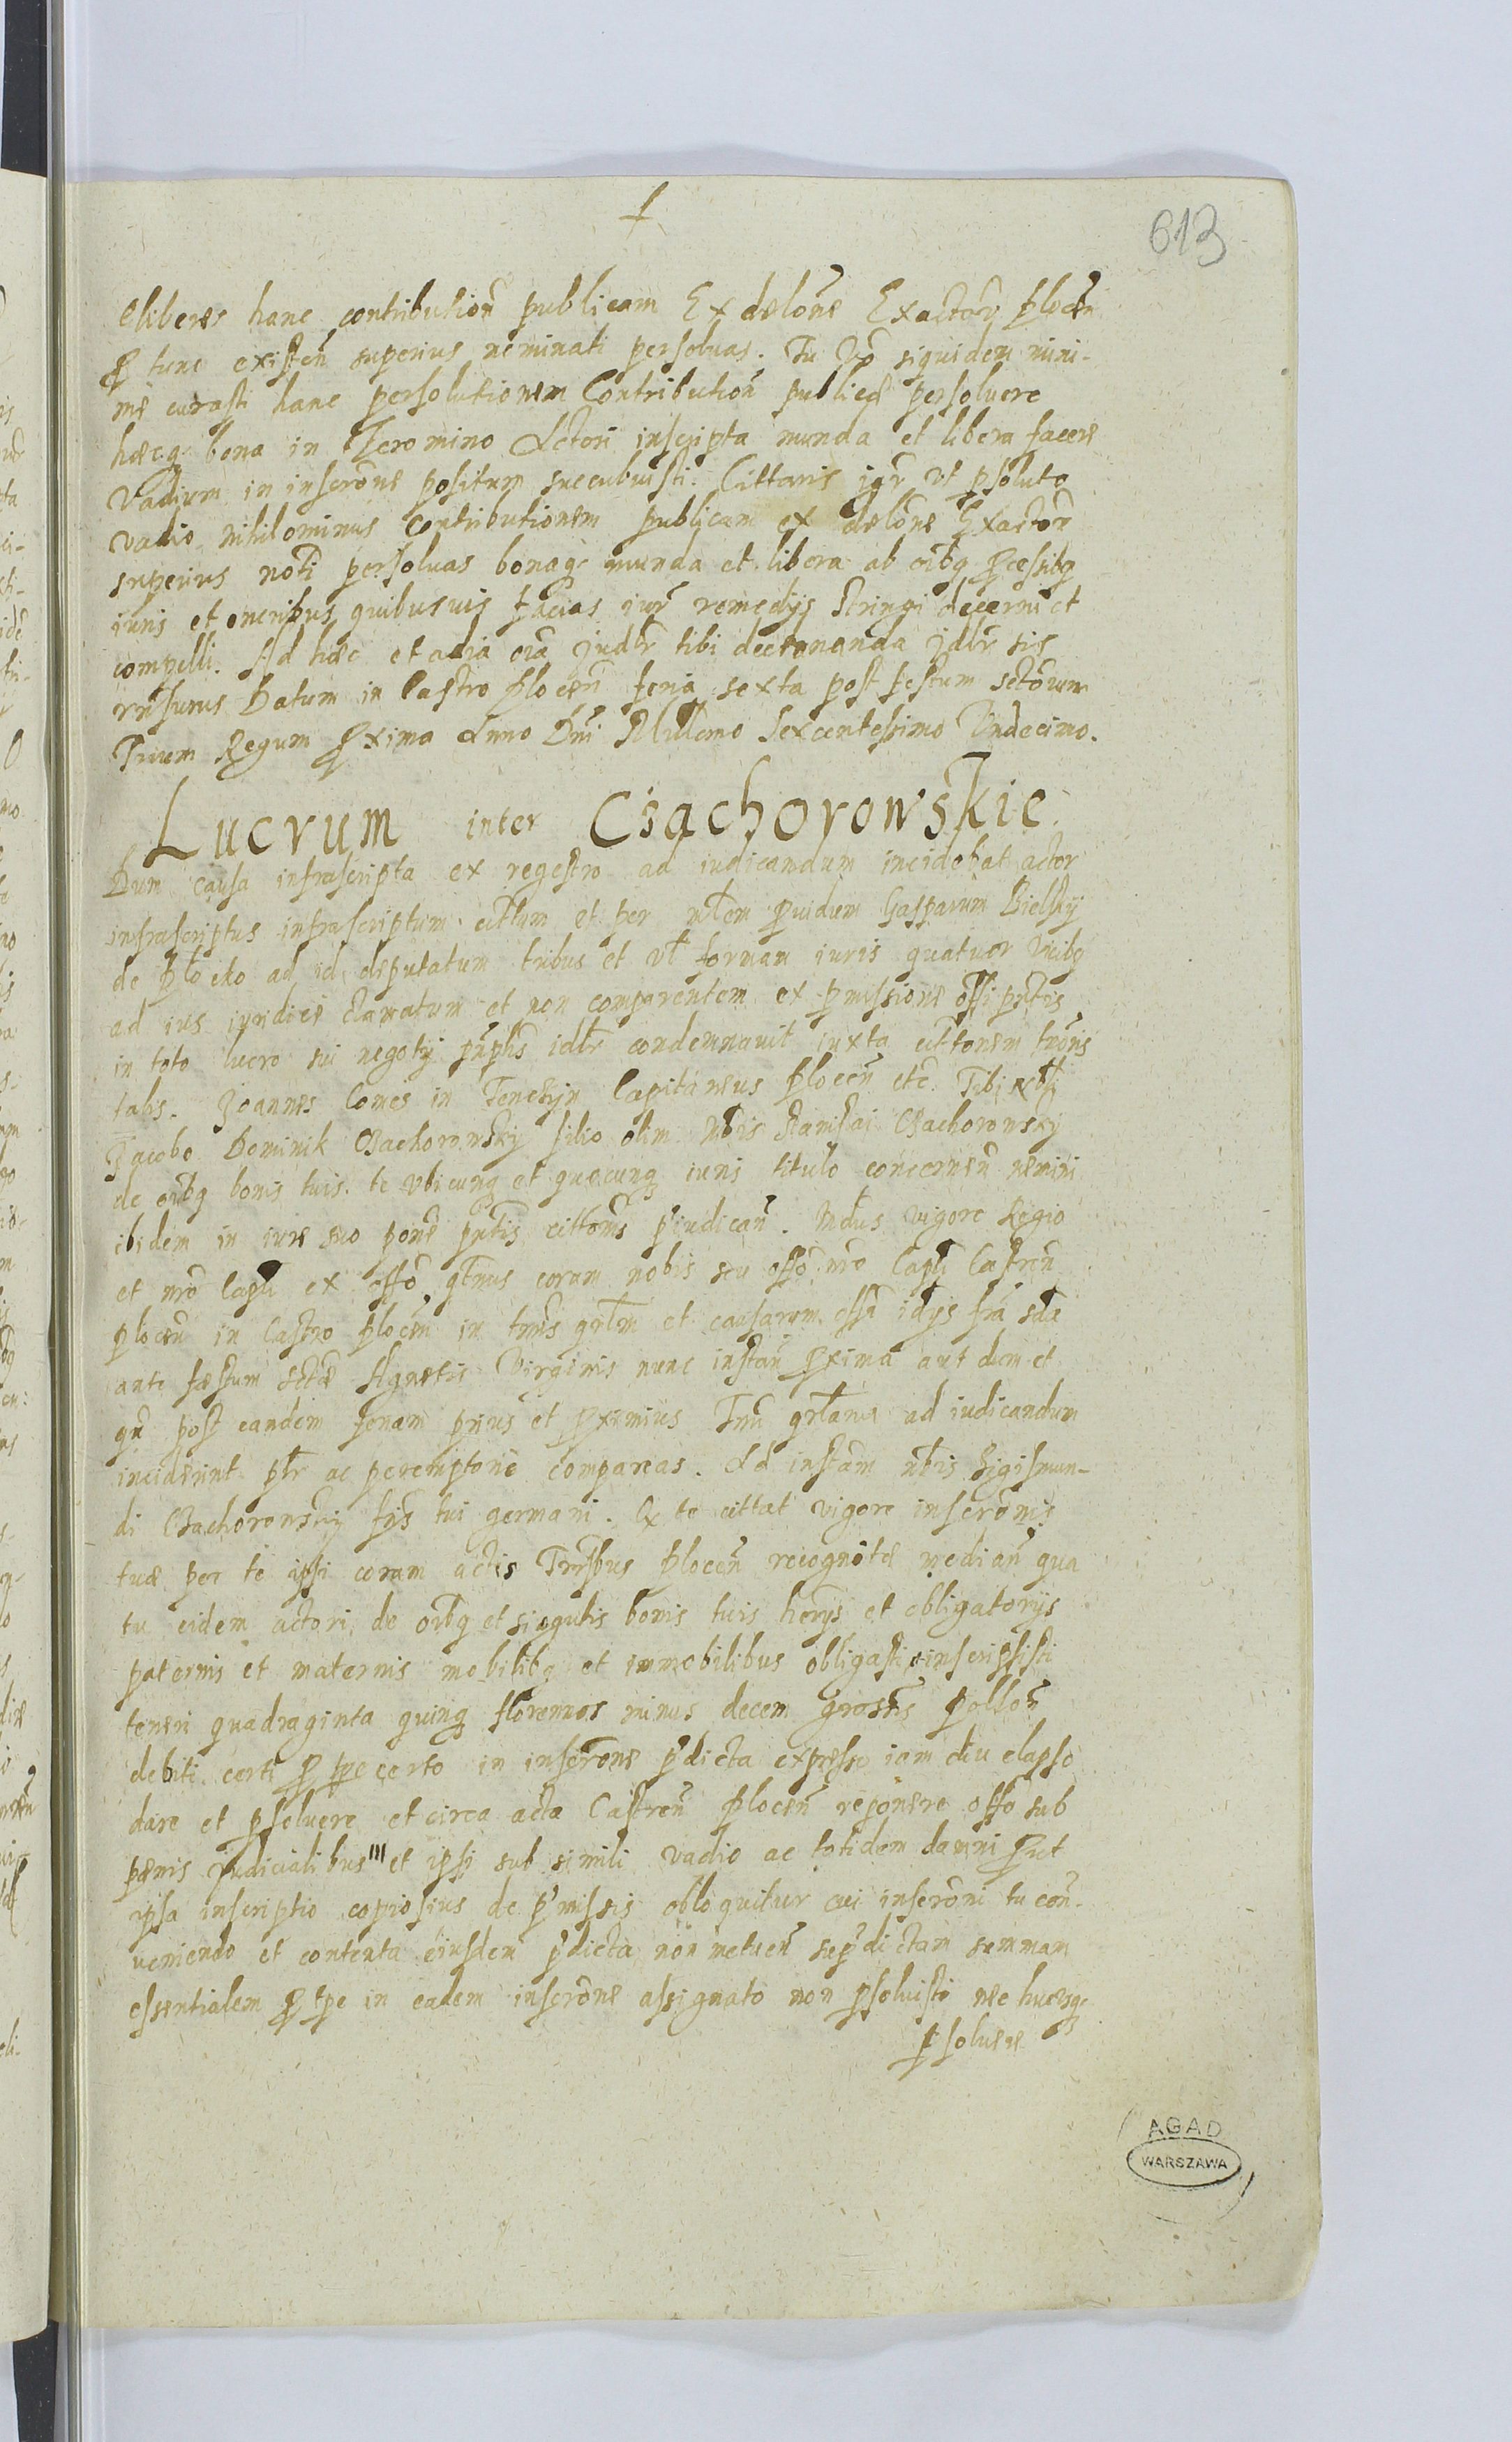 613
eliberes hanc contribution̄ publicam Ex delōne Exactor̄ plocen̄
p tunc existen̄ superius nominati persoluas. Tu v̄o siquidem mini-
me curasti hanc persolutionem Contribution̄ publicæ persoluere
hæcq bona in Zeromino Actori inscripta munda et libera facere
Vadium in inscrōne positum succubuisti. Cittaris igr̄ vt psoluto
vadio nihilominus Contributionem publicam ex delōne Exactor̄
superius noti persoluas bonaq munda et libera ab oībq pcessibq
iuris et oneribus quibusuis facias iur̄ remedijs stringi decerni et
compelli. Ad hæc et alia oīa judlr̄ tibi declananda jdlr̄ sis
rn̄surus Datum in Castro plocen̄ feria sexta post festum sctōrum
Trium Regum pxima Anno Dn̄i Millemo Sexcentessimo Vndecimo.
Lucrum inter Csachorowskie
Dum causa infrascripta ex regestro ad iudicandum incidebat actor
infrascriptus infrascriptum cittum et per mltem puidum Gasparum Bielskij
de plocko ad id deputatum tribus et vlt forman iuris quatuor vicibq
ad ius iuridice clamatum et non comparentem ex pmissione offi pn̄tis
in toto lucro sui negotij idlr̄ condemnauit iuxta cittonem
talis. Joannes Comes in Tenczyn Capitaneus plocen̄ etc Tibi nbli
Jacobo Dominik Czachorowskij filio olim Nbis Stanislai Czachorowskij
de oībq bonis tuis te vbicunq et quæcunq iuris titulo concernen̄ nemini
ibidem in iure suo pone pn̄tis cittonis piudican̄. Mdmus vigore Regio
et nrō Capli ex offō qtnus coram nobis seu offō nrō Capli Castren̄
plocen̄ in Castro plocen̄ in tmis qrlm et causarum offi idijs fra sda
ante fæstum sctæ Agnetis Virginis nunc instan̄ pxima aut dum et
qn̄ post eandem feriam prius et pximius Tmi qrlarū ad iudicandum
inciderint plr̄ ac peremptorie compareas. Ad instam nbis Sigismun-
di Czachorowskij frīs tui germani. Qx te cittat vigore inscronis
tuæ per te ipsi coram actis Trr̄sbus plocen̄ recognitæ median̄ qua
tu eidem actori de oībq et singulis bonis tuis hærijs et obligatorijs
paternis et maternis mobilibq et immobilibus obligasti et inscripsisti
teneri quadraginta quinq florenos minus decem grossis pollon̄
debiti certi p tpe certo in inscrōne pdicta expresso iam diu elapso
dare et psoluere et circa acta Castren̄ plocen̄ reponere offō sub
pœnis judicialibus et ipsi sub simili vadio ac totidem damni put
ipsa inscriptio copiosius de pmissis obloquitur cui inscrōni tu con-
ueniendo et contenta eiusdem pdicta non metuen̄ supdictam summam
essentialem p tpe in eadem inscrōne assignato non psoluisti nec hucusq
psoluere
AGAD
WARSZAWA